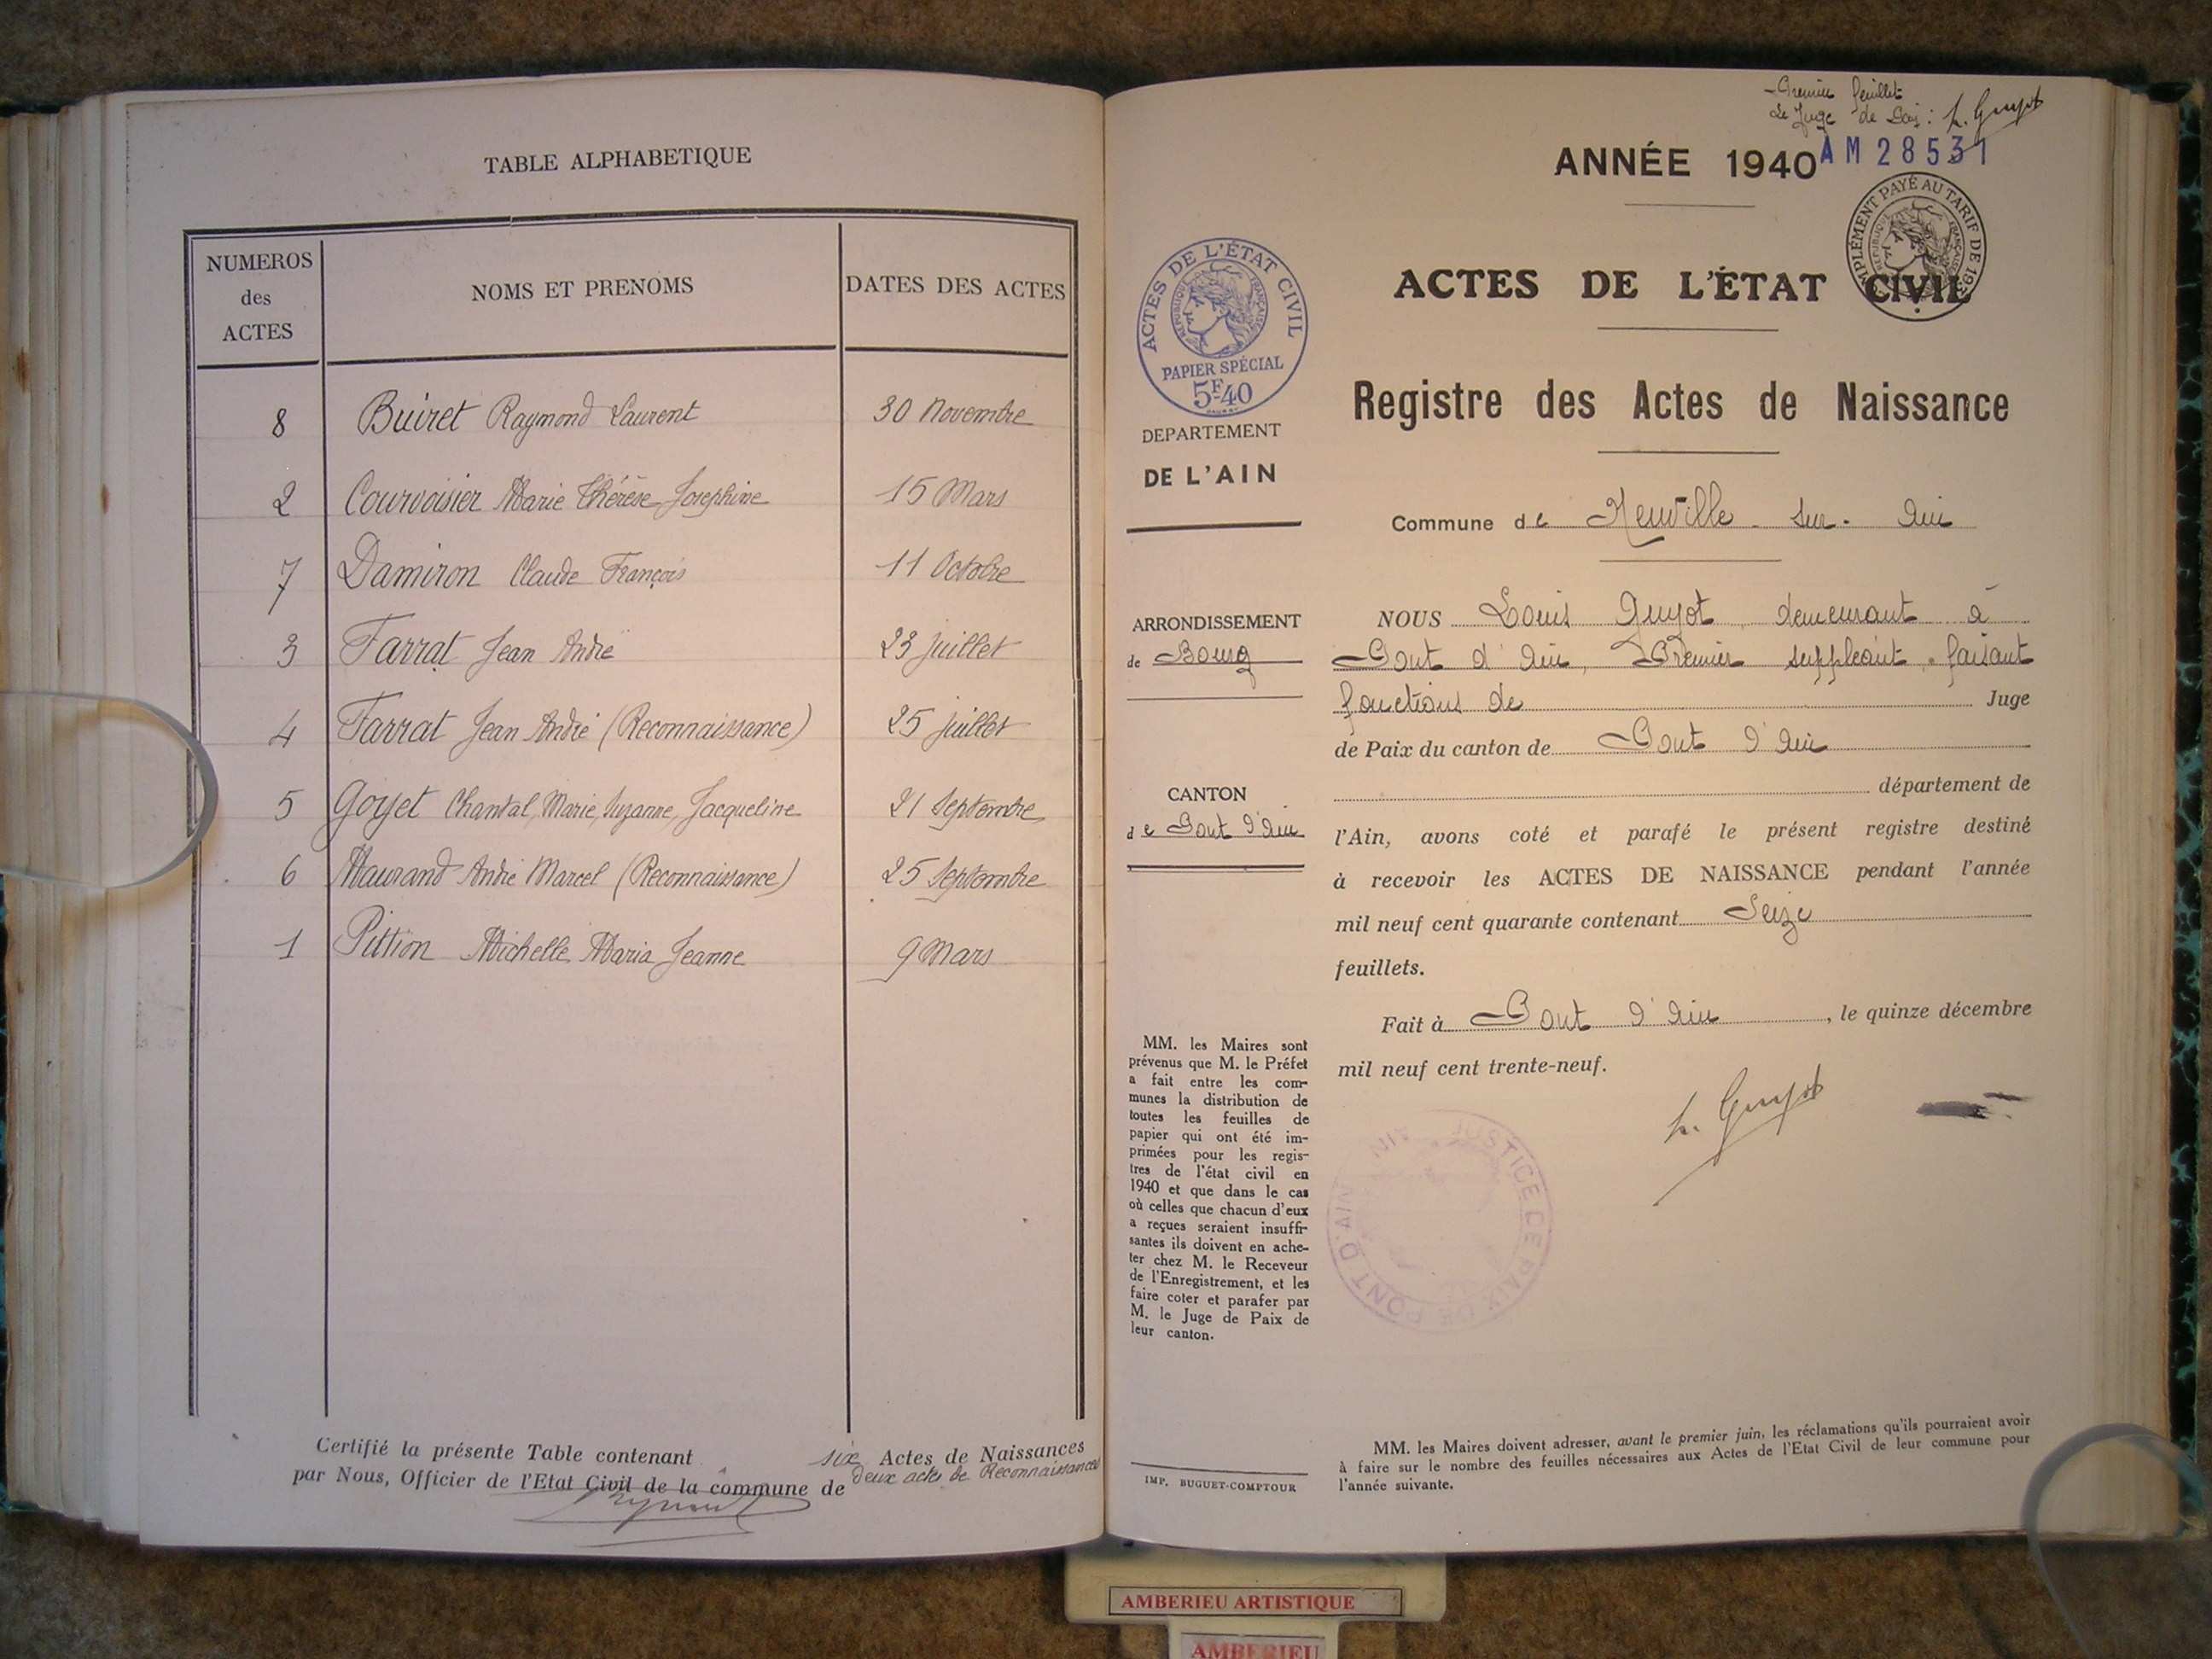 TABLE ALPHABETIQUE
NUMEROS
des
ACTES
NOMS ET PRENOMS
DATES DES ACTES
8 Buiret Raymond Laurent 30 Novembre
2 Courvoisier Marie Thérèse Josephine 15 Mars
7 Damiron Claude François 11 Octobre
3 Farrat Jean André 23 juillet
4 Farrat Jean André (Reconnaissance) 25 juillet
5 Goyet Chantal, Marie, Suzanne, Jacqueline 21 Septembre
6 Maurand André Marcel (Reconnaissance) 25 Septembre
1 Pittion Michelle Maria Jeanne 9 Mars
Certifié la présente Table contenant six Actes de Naissances
deux actes de Reconnaissances
par Nous, Officier de l'Etat Civil de la commune de
Premier feuillet
Le Juge de Paix : L. Guyot
ANNÉE 1940
AM 28531
ACTES DE L'ÉTAT CIVIL
PAYÉ AU TARIF DE
RÉPUBLIQUE FRANÇAISE
ACTES DE L'ÉTAT CIVIL
RÉPUBLIQUE FRANÇAISE
PAPIER SPÉCIAL
5F40
Registre des Actes de Naissance
DEPARTEMENT
DE L'AIN
Commune de Neuville-sur-Ain
ARRONDISSEMENT
de Bourg
CANTON
de Pont d'Ain
NOUS Louis Guyot, demeurant à
Pont d'Ain, Premier suppléant, faisant
fonctions de Juge
de Paix du canton de Pont d'Ain
département de
l'Ain, avons coté et parafé le présent registre destiné
à recevoir les ACTES DE NAISSANCE pendant l'année
mil neuf cent quarante contenant Seize
feuillets.
Fait à Pont d'Ain, le quinze décembre
mil neuf cent trente-neuf.
L. Guyot
JUSTICE DE PAIX DE PONT D'AIN AIN
MM. les Maires sont
prévenus que M. le Préfet
a fait entre les com-
munes la distribution de
toutes les feuilles de
papier qui ont été im-
primées pour les regis-
tres de l'état civil en
1940 et que dans le cas
où celles que chacun d'eux
a reçues seraient insuffi-
santes ils doivent en ache-
ter chez M. le Receveur
de l'Enregistrement, et les
faire coter et parafer par
M. le Juge de Paix de
leur canton.
IMP. BUGUET-COMPTOUR
MM. les Maires doivent adresser, avant le premier juin, les réclamations qu'ils pourraient avoir
à faire sur le nombre des feuilles nécessaires aux Actes de l'Etat Civil de leur commune pour
l'année suivante.
AMBERIEU ARTISTIQUE
AMBERIEU